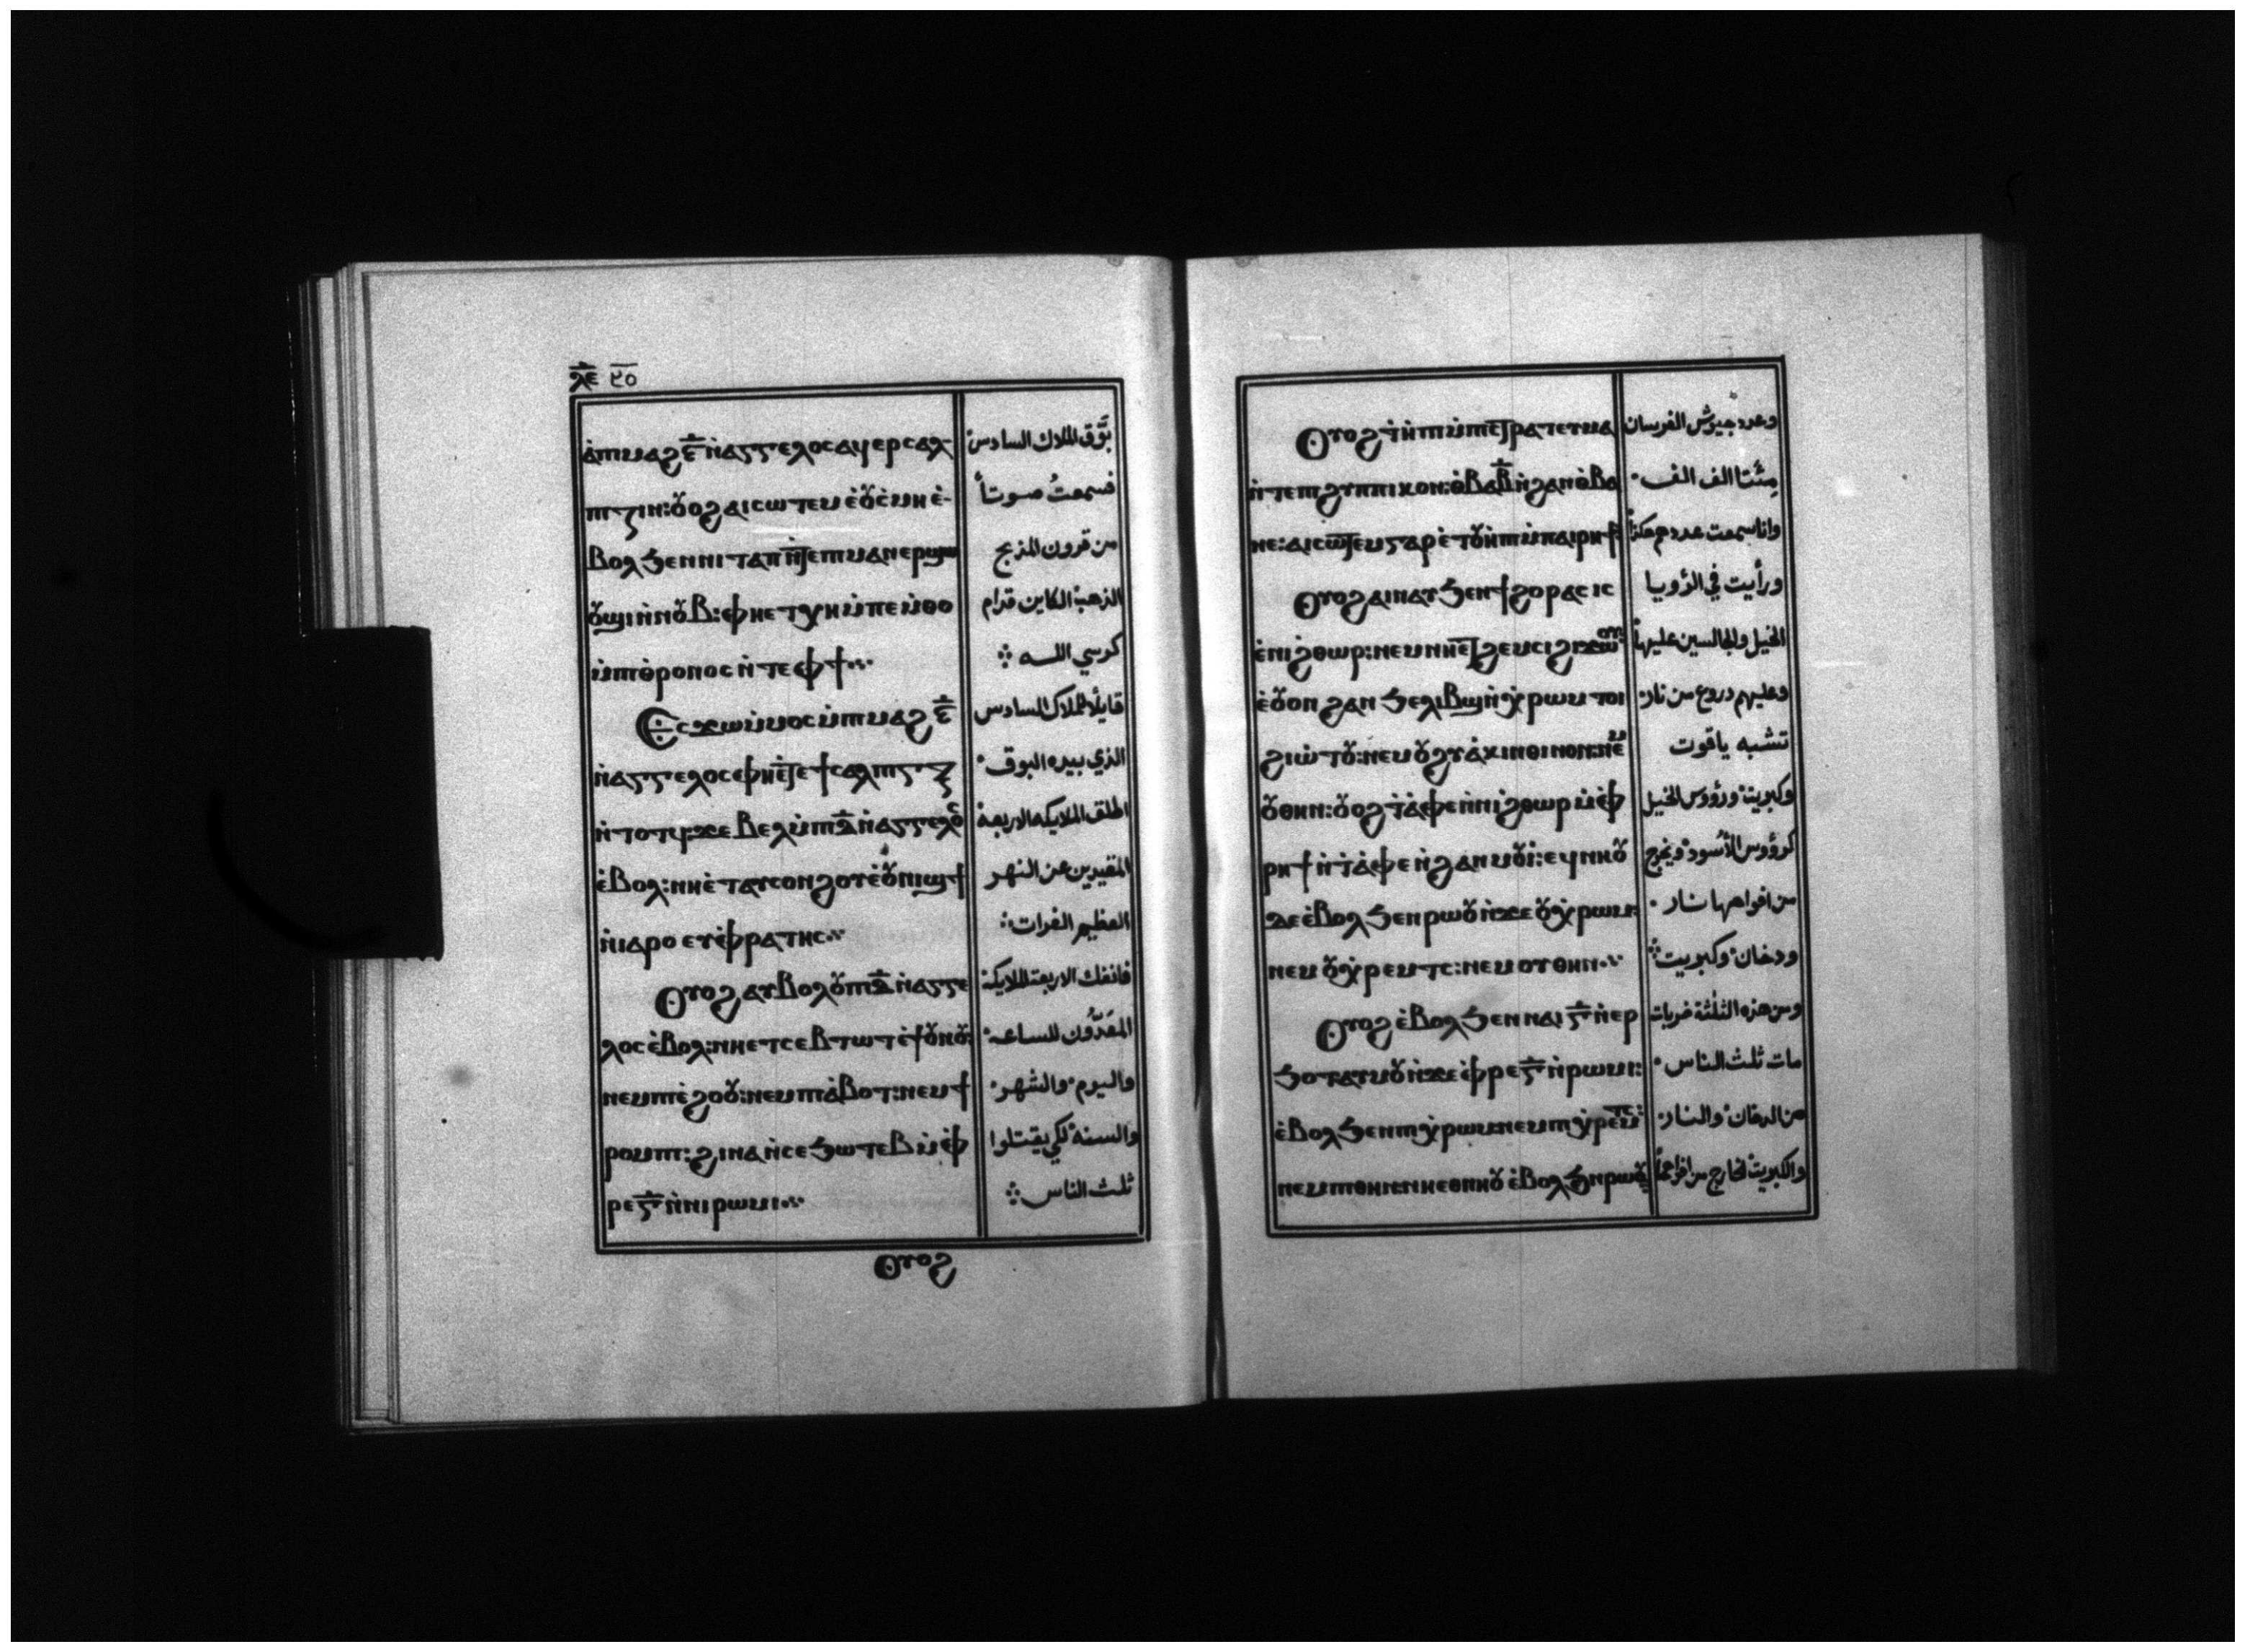 ⲗ̅ⲉ̅
ⲁ̀ⲡⲓⲙⲁϩ ⲋ̅ ⲛ̀ⲁⲅⲅⲉⲗⲟⲥ ⲁϥⲉⲣⲥⲁⲗ-
ⲡⲓⲍⲓⲛ: ⲟⲩⲟϩ ⲁⲓⲥⲱⲧⲉⲙ ⲉ̀ⲟⲩⲥ̀ⲙⲏ ⲉ̀-
ⲃⲟⲗ ϧⲉⲛ ⲛⲓⲧⲁⲡ ⲛ̀ⲧⲉ ⲡⲓⲙⲁⲛⲉⲣϣⲱ
ⲟⲩϣⲓ ⲛ̀ⲛⲟⲩⲃ: ⲫⲏⲉⲧⲭⲏ ⲙ̀ⲡⲉⲙ̀ⲑⲟ
ⲙ̀ⲡⲓⲑ̀ⲣⲟⲛⲟⲥ ⲛ̀ⲧⲉ ⲫϯ
Ⲉⲥϫⲱ ⲙ̀ⲙⲟⲥ ⲙ̀ⲡⲓⲙⲁϩ ⲋ̅
ⲛ̀ⲁⲅⲅⲉⲗⲟⲥ ⲉⲫⲏⲉ̀ⲧⲉ ϯⲥⲁⲗⲡⲓⲅⲅⲝ
ⲛ̀ⲧⲟⲧϥ: ϫⲉ ⲃⲉⲗ ⲙ̀ⲡⲓ ⲇ̅ ⲛ̀ⲁⲅⲅⲉⲗⲟⲥ
ⲉ̀ⲃⲟⲗ: ⲛⲏⲉ̀ⲧⲁⲩⲥⲟⲛϩⲟⲩ ⲉ̀ϫⲟⲩⲛⲓϣϯ
ⲛ̀ⲓⲁⲣⲟ ⲉⲩⲫ̀ⲣⲁⲧⲏⲥ
Ⲟⲩⲟϩ ⲁⲩⲃⲟⲗⲟⲩ ⲡⲓ ⲇ̅ ⲛ̀ⲁⲅⲅⲉ
ⲗⲟⲥ ⲉ̀ⲃⲟⲗ: ⲛⲏⲉⲧⲥⲉⲃⲧⲱⲧ ⲉ̀ϯⲟⲩⲛⲟⲩ:
ⲛⲉⲙ ⲡⲓⲉ̀ϩⲟⲟⲩ: ⲛⲉⲙ ⲡⲓⲁ̀ⲃⲟⲧ: ⲛⲉⲙ ϯ
ⲣⲟⲙⲡⲓ: ϩⲓⲛⲁ ⲛ̀ⲥⲉϧⲱⲧⲉⲃ ⲙ̀ⲫ̀
ⲣⲉ ⲅ̅ ⲛ̀ⲛⲓⲣⲱⲙⲓ
Ⲟⲩⲟϩ
بَوَّق الملاك السادس
فسمعتُ صوتاً
من قرون المذبح
الذهب الكاين قدام
كرسي اللـه
قايلًا للملاك السادس
الذي بيده البوق
اطلق الملايكه الاربعة
المقيدين عن النهر
العظيم الفرات
فانفك الاربعة الملايكة
المعَدّون للساعه
واليوم والشهر
والسنه لكي يقتلوا
ثلث الناس
Ⲟⲩⲟϩ ⲧ̀ⲏⲡⲓ ⲙ̀ⲡⲓⲥ̀ⲧⲣⲁⲧⲉⲩⲙⲁ
ⲛ̀ⲧⲉ ⲡⲓϩⲩⲡⲡⲓⲕⲟⲛ: ⲑ̀ⲃⲁ ⲃ̅ ⲛ̀ϩⲁⲛⲑ̀ⲃⲁ
ⲛⲉ: ⲁⲓⲥⲱⲧⲉⲙ ⲅⲁⲣ ⲉ̀ⲧⲟⲩⲏ̀ⲡⲓ ⲙ̀ⲡⲁⲓⲣⲏϯ
Ⲟⲩⲟϩ ⲁⲓⲛⲁⲩ ϧⲉⲛ ϯϩⲟⲣⲁⲥⲓⲥ
ⲉ̀ⲛⲓϩ̀ⲑⲱⲣ: ⲛⲉⲙ ⲛⲏⲉⲧϩⲉⲙⲥⲓ ϩⲓϫⲱⲟⲩ
ⲉ̀ⲟⲩⲟⲛ ϩⲁⲛϧⲉⲗⲓⲃϣ ⲛ̀ⲭ̀ⲣⲱⲙ ⲧⲟⲓ
ϩⲓⲱ̀ⲧⲟⲩ: ⲛⲉⲙ ⲟⲩϩⲩⲁ̀ⲕⲓⲛⲑⲓⲛⲟⲛ: ⲛⲉⲙ
ⲟⲩⲑⲏⲛ: ⲟⲩⲟϩ ⲧ̀ⲁ̀ⲫⲉ ⲛ̀ⲛⲓϩ̀ⲑⲱⲣ ⲙ̀ⲫ̀
ⲣⲏϯ ⲛ̀ⲧ̀ⲁ̀ⲫⲉ ⲛ̀ϩⲁⲛⲙⲟⲩⲓ̀: ⲉϥⲛⲏⲟⲩ
ⲇⲉ ⲉ̀ⲃⲟⲗ ϧⲉⲛ ⲣⲱⲟⲩ ⲛ̀ϫⲉ ⲟⲩⲭ̀ⲣⲱⲙ:
ⲛⲉⲙ ⲟⲩⲭ̀ⲣⲉⲙⲧⲥ: ⲛⲉⲙ ⲟⲩⲑⲏⲛ
Ⲟⲩⲟϩ ⲉ̀ⲃⲟⲗ ϧⲉⲛ ⲛⲁⲓ ⲅ̅ ⲛ̀ⲉⲣ
ϧⲟⲧ ⲁⲩⲙⲟⲩ ⲛ̀ϫⲉ ⲫ̀ⲣⲉ ⲅ̅ ⲛ̀ⲣⲱⲙⲓ:
ⲉ̀ⲃⲟⲗ ϧⲉⲛ ⲡⲓⲭ̀ⲣⲱⲙ ⲛⲉⲙ ⲡⲓⲭ̀ⲣⲉⲙⲧⲥ:
ⲛⲉⲙ ⲡⲓⲑⲏⲛ: ⲛⲏⲉⲑⲛⲏⲟⲩ ⲉ̀ⲃⲟⲗ ϧⲉⲛ ⲣⲱⲟⲩ
وعدد جيوش الفرسان
مِئَتا الف الف
وانا سمعت عددهم هكذا
ورأيت في الرؤيا
الخيل والجالسين عليها
وعليهم دروع من نار
تشبه ياقوت
وكبريت ورؤوس الخيل
كرؤوس الأُسود ويخرج
من افواهها نـار
ودخان وكبريت
ومن هذه الثلثة ضربات
مات ثلث الناس
من الدخان والنـار
والكبريت الخارج من افواهها